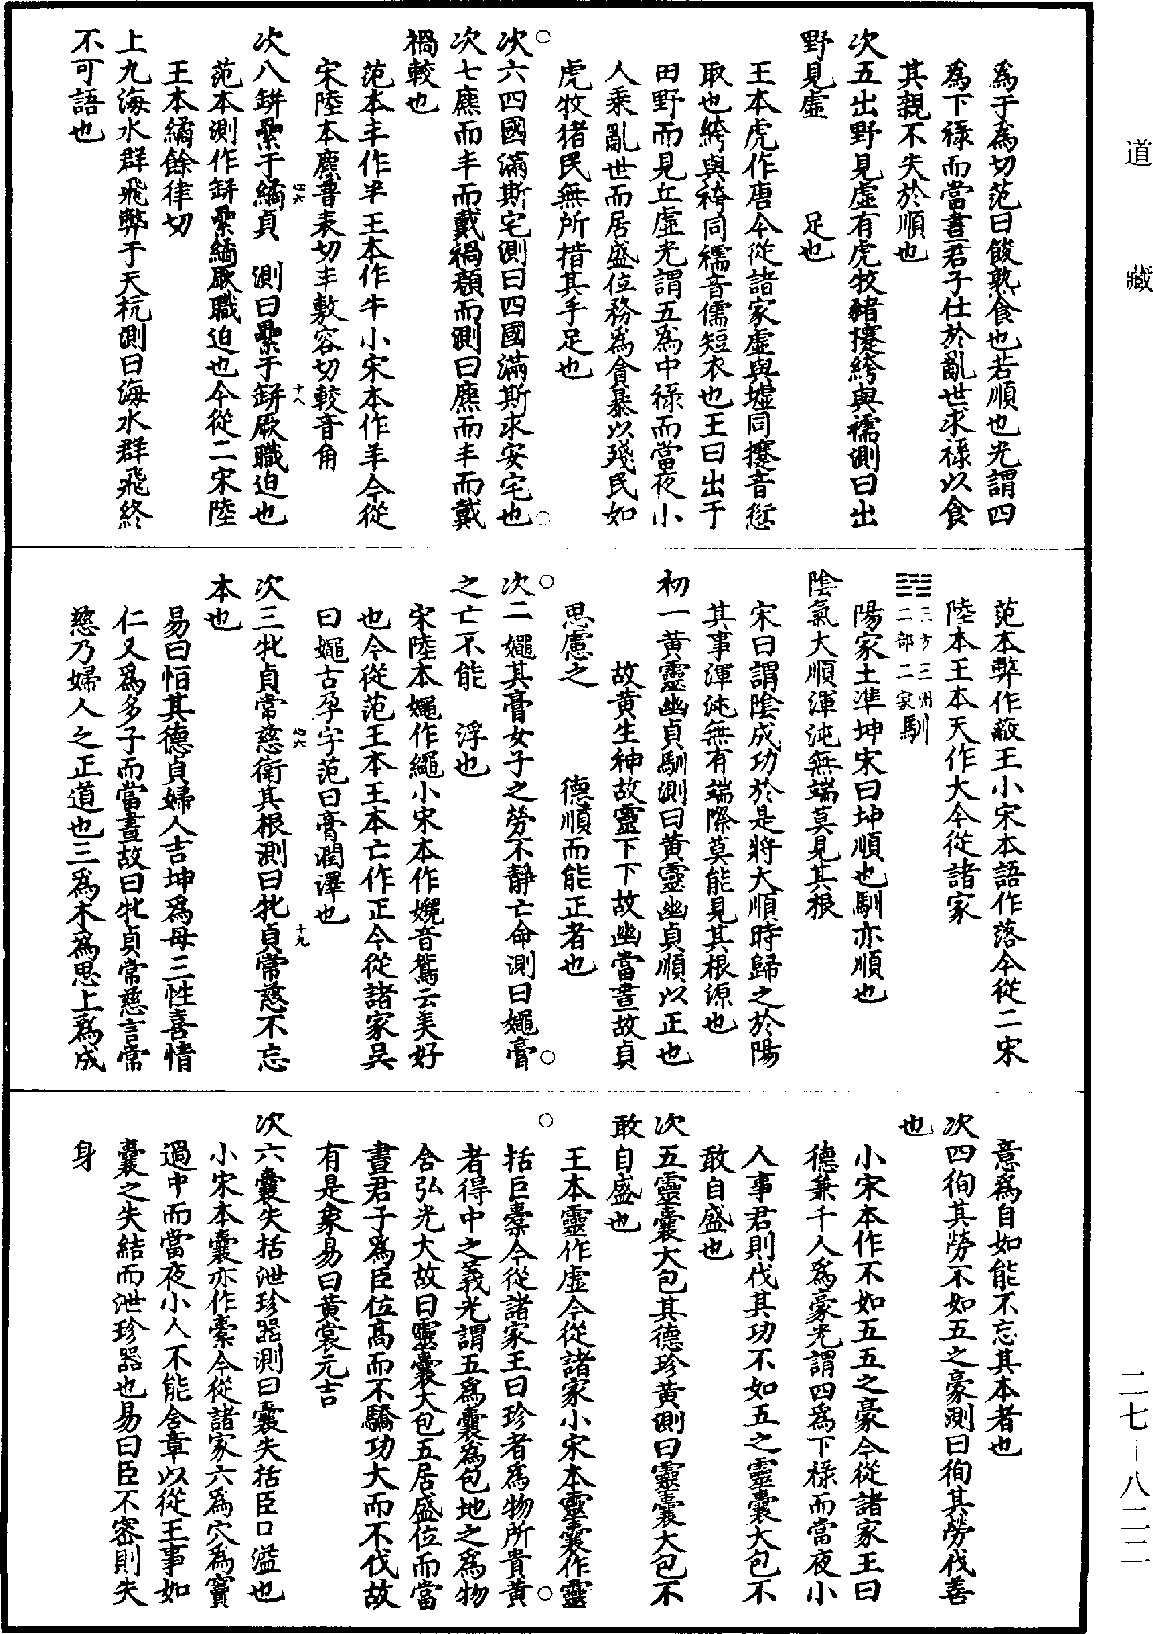 道藏
爲于爲切范曰餕熟食也若順也光謂四
爲下祿而當晝君子仕於亂世求祿以食
其親不失於順也
次五出野見虛有虎牧豬攓絝與襦測曰出
野見虛 足也
王本虎作唐今從諸家虛與墟同攓音愆
取也絝與袴同襦音儒短衣也王曰出于
田野而見丘虛光謂五爲中祿而當夜小
人乘亂世而居盛位務爲貪暴以殘民如
虎牧猪民無所措其手足也
次六四國滿斯宅測曰四國滿斯求安宅也
次七麃而丰而戴禍顏而測曰麃而丰而戴
禍較也
范本丰作半王本作牛小宋本作羊今從
宋陸本麃普表切丰敷容切較音角
次八缾纍于繘貞 測曰纍于缾厥職迫也
范本測作缾纍繘厥職迫也今從二宋陸
王本繘餘律切
上九海水群飛弊于天杭測曰海水群飛終
不可語也
范本弊作蔽王小宋本語作落今從二宋
陸本王本天作大今從諸家
三方三州
二部二家馴
陽家土準坤宋曰坤順也馴亦順也
陰氣大順渾沌無端莫見其根
宋曰謂陰成功於是將大順時歸之於陽
其事渾沌無有端際莫能見其根源也
初一黃靈幽貞馴測曰黃靈幽貞順以正也
故黃生神故靈下下故幽當晝故貞
思慮之 德順而能正者也
次二㜲其膏女子之勞不靜亡命測曰㜲膏
之亡不能 浮也
宋陸本㜲作繩小宋本作嬎音駕云美好
也今從范王本王本亡作正今從諸家吳
曰㜲古孕字范曰膏潤澤也
次三牝貞常慈衛其根測曰牝貞常慈不忘
本也
易曰恒其德貞婦人吉坤爲母三性喜情
仁又爲多子而當晝故曰牝貞常慈言常
慈乃婦人之正道也三爲木爲思上爲成
意爲自如能不忘其本者也
次四徇其勞不如五之豪測曰徇其勞伐善
也
小宋本作不如五五之豪今從諸家王曰
德兼千人爲豪光謂四爲下祿而當夜小
人事君則伐其功不如五之靈囊大包不
敢自盛也
次五靈囊大包其德珍黃測曰靈囊大包不
敢自盛也
王本靈作虛今從諸家小宋本靈囊作靈
括巨橐今從諸家王曰珍者爲物所貴黃
者得中之義光謂五爲囊爲包地之爲物
含弘光大故曰靈囊大包五居盛位而當
晝君子爲臣位高而不驕功大而不伐故
有是象易曰黃裳元吉
次六囊失括泄珍器測曰囊失括臣口溢也
小宋本囊亦作橐今從諸家六爲穴爲竇
過中而當夜小人不能含章以從王事如
囊之失結而泄珍器也易曰臣不密則失
身
二七—八二二